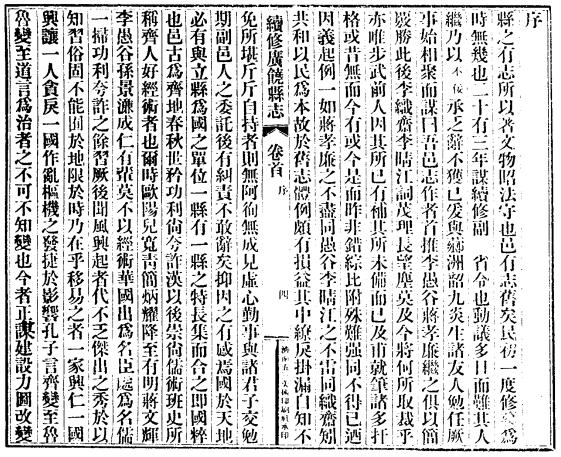 序
縣之有志所以著文物昭法守也邑有志舊矣民初一度修
時無幾也二十有三年謀續修副 省令也動議多日而難其人
繼乃以不佞承之辭不獲已爰與 洲韶九炎生諸友人勉任厥
事始相聚而謀曰吾邑志作者首推李愚谷蔣孝廉繼之俱以簡
嚴勝此後李織齋李晴江詞茂理長望塵莫及今將何所取裁乎
亦唯步武前人因其所已有補其所未備而已及甫就筆諸多扞
格或昔無而今有或今是而昨非錯綜比附殊難強同不得已酒
因義起例一如蔣孝廉之不盡同愚谷李晴江之不雷同織齋矧
共和以民爲本故於舊志體例頗有損益其中繚戾掛漏自知不
續修廣饒縣志
卷首
序
四
免所堪斤斤自持者則無阿徇無成見虛心勤事與諸君子交勉
期副邑人之委託後有糾責不敢辭矣抑因之有感焉國於天地
必有與立縣爲國之單位一縣有一縣之特長集而合之卽國粹
也邑古爲齊地春秋世矜功利尙今許漢以後崇尙儒術班史所
稱齊人好經術者也爾時歐陽兒寬靑簡炳耀降至有明蔣文輝
李愚谷孫景濂成仁有輩莫不以經術華國出爲名臣處爲名儒
一掃功利夸詐之餘習厥後聞風興起者代不乏傑出之秀於以
知習俗固不能囿於地限於時乃在乎移易之者一家興仁一國
興讓一人貪戾一國作亂樞機之發捷於影響孔子言齊變至魯
魯變至道言爲治者之不可不知變也今者正謀建設力圖改變